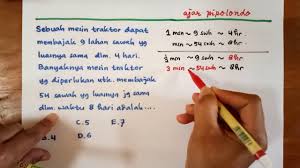 ajar pipolondo
Sebuah mesin traktor dapat
membajak 9 lahan sawah yg
luasnya sama dlm. 4 hari.
Banyaknya mesin traktor
yg diperlukan utk. membajak
54 sawah yg luasnya sama jg
dlm. waktu 8 hari adalah....
C. 5 E. 7
D. 6
1 min ~ 9 swh ~ 4 hr
min ~ 54 swh ~ 8 hr
1/2 min ~ 9 swh ~ 8 hr
3 min ~ 54 swh ~ 8 hr